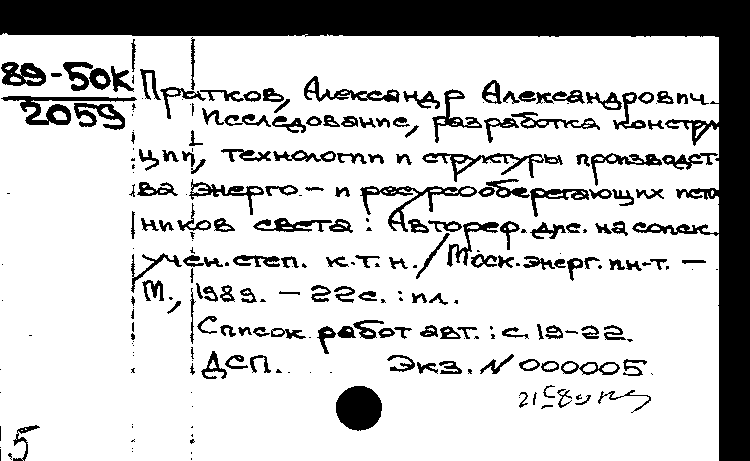 89-50к
2059
Пратков, Александр Александрович.
Исследование, разработка констру
ции, технологии и структуры производст
ва энерго- и ресурсосберегающих источ
ников света : Автореф. дис. на соиск.
учен. степ. к.т.н. / Моск. энерг. ин-т. —
М., 1989. — 22с. : ил.
Список работ авт. : с. 19-22.
ДСП. Экз. N 000005
5